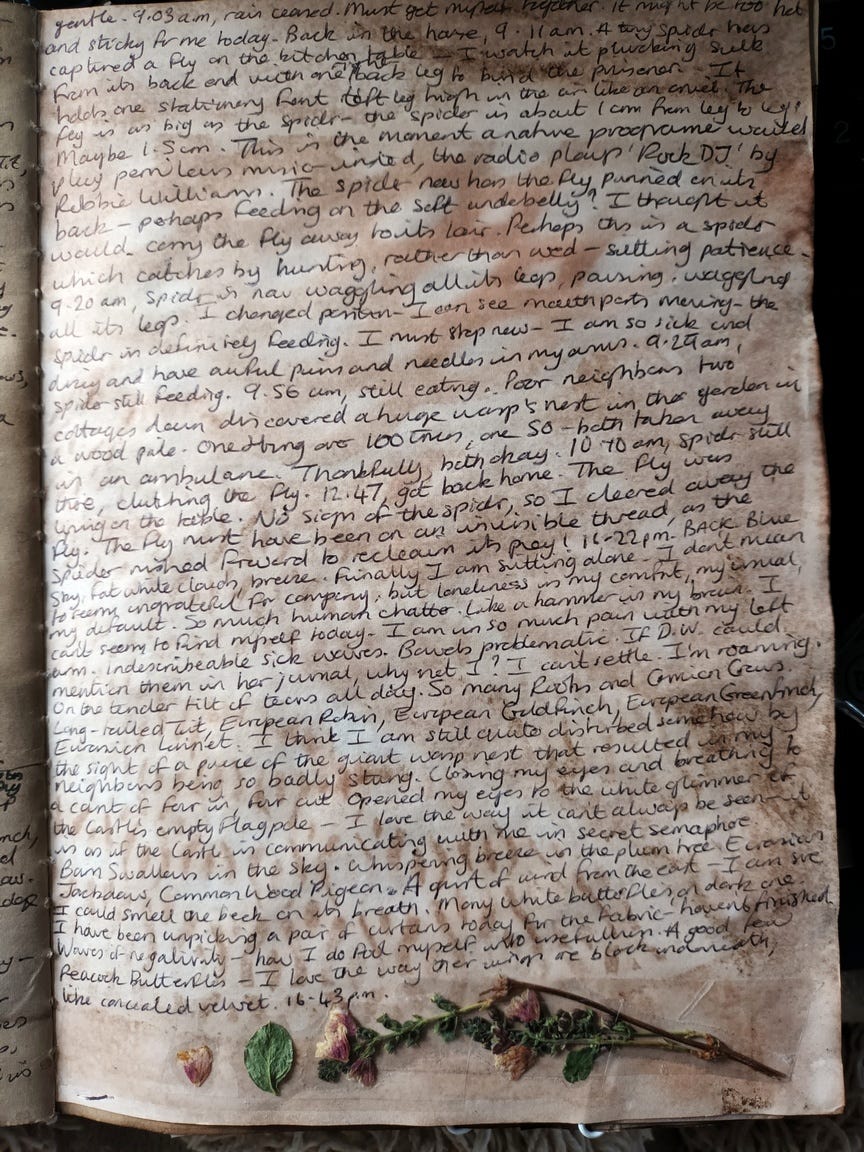 gentle. 9.03 a.m, rain ceased. Must get myself together. It might be too hot
and sticky for me today. Back in the house, 9.11am. A tiny spider has
captured a fly on the kitchen table - I watch it plucking silk
from its back end with one back leg to bind the prisoner - It
holds one stationary front left leg high in the air like an anvil. The
fly is as big as the spider - the spider is about 1cm from leg to leg.
Maybe 1.5cm. This is the moment a nature programme would
play perilous music - instead, the radio plays 'Rock DJ' by
Robbie Williams. The spider now has the fly pinned on its
back - perhaps feeding on the soft underbelly? I thought it
would carry the fly away to its lair. Perhaps this is a spider
which catches by hunting, rather than web-sitting patience.
9.20 am, spider is now waggling all its legs, pausing, waggling
all its legs. I changed position - I can see mouthparts moving - the
spider is definitely feeding. I must stop now - I am so sick and
dizzy and have awful pins and needles in my arms. 9.29am,
spider still feeding. 9.56 am, still eating. Poor neighbours two
cottages down discovered a huge wasp's nest in their garden in
a wood pile. One stung over 100 times, one 50 - both taken away
in an ambulance. Thankfully, both okay. 10.40 am, spider still
there, clutching the fly. 12.47, got back home. The fly was
lying on the table. No sign of the spider, so I cleared away the
fly. The fly must have been on an invisible thread, as the
spider rushed forward to reclaim its prey! 16.22pm. BACK Blue
sky, fat white clouds, breeze. Finally I am sitting alone - I don't mean
to seem ungrateful for company, but loneliness is my comfort, my usual,
my default. So much human chatter. Like a hammer in my brain. I
can't seem to find myself today. I am in so much pain with my left
arm. Indescribeable sick waves. Bowels problematic. If D.W. could
mention them in her journal, why not I? I can't settle. I'm roaming.
On the tender tilt of tears all day. So many Rooks and Carrion Crows.
Long-tailed Tit, European Robin, European Goldfinch, European Greenfinch,
Eurasian Linnet. I think I am still quite disturbed somehow by
the sight of a piece of the giant wasp nest that resulted in my
neighbours being so badly stung. Closing my eyes and breathing to
a count of four in, four out. Opened my eyes to the white glimmer of
the Castle's empty flagpole - I love the way it can't always be seen - it
is as if the Castle is communicating with me in secret semaphore.
Barn Swallows in the sky. Whispering breeze in the plum tree. Eurasian
Jackdaws, Common Wood Pigeon. A spurt of wind from the east - I am sure
I could smell the beck on its breath. Many white butterflies, or dark one.
I have been unpicking a pair of curtains today for the fabric - haven't finished.
Waves of negativity - how I do fool myself into usefulness. A good few
Peacock Butterflies - I love the way their wings are black underneath,
like concealed velvet. 16.43pm.